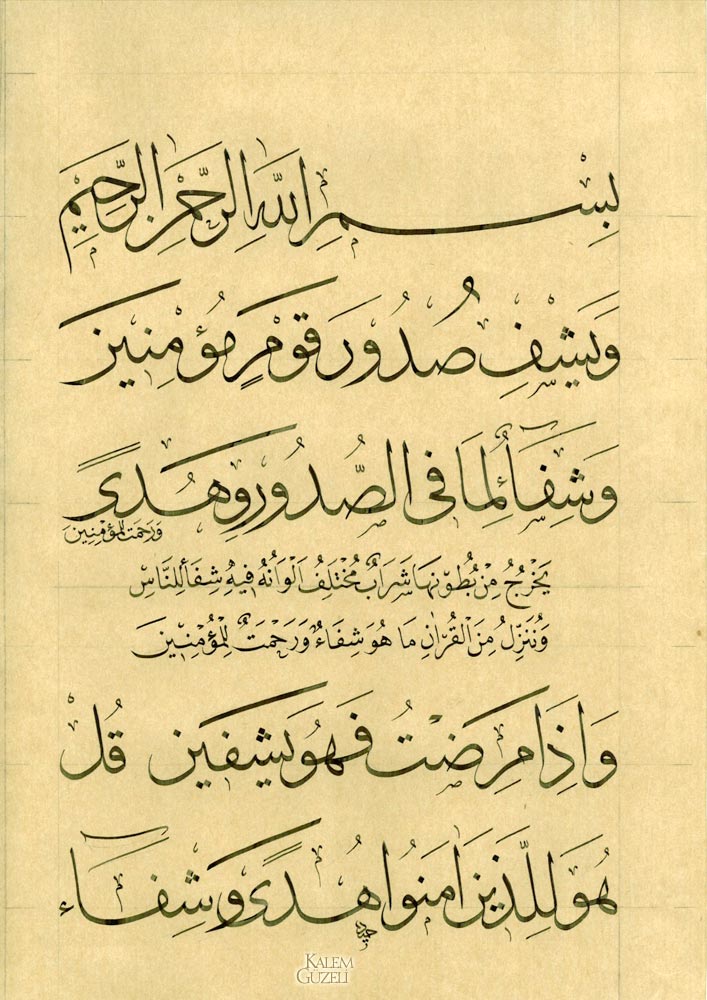 بِسْمِ اللّٰهِ الرَّحْمٰنِ الرَّحِيمِ
وَيَشْفِ صُدُورَ قَوْمٍ مُؤْمِنِينَ
وَشِفَآءٌ لِمَا فِى الصُّدُورِ وَهُدًى
وَرَحْمَتٌ لِلْمُؤْمِنِينَ
يَخْرُجُ مِنْ بُطُونِهَا شَرَابٌ مُخْتَلِفٌ اَلْوَانُهُ فِيهِ شِفَآءٌ لِلنَّاسِ
وَنُنَزِّلُ مِنَ الْقُرْاٰنِ مَا هُوَ شِفَآءٌ وَرَحْمَتٌ لِلْمُؤْمِنِينَ
وَاِذَا مَرِضْتُ فَهُوَ يَشْفِينِ قُلْ
هُوَ لِلَّذِينَ اٰمَنُوا هُدًى وَشِفَآءٌ
KALEM
GÜZELİ